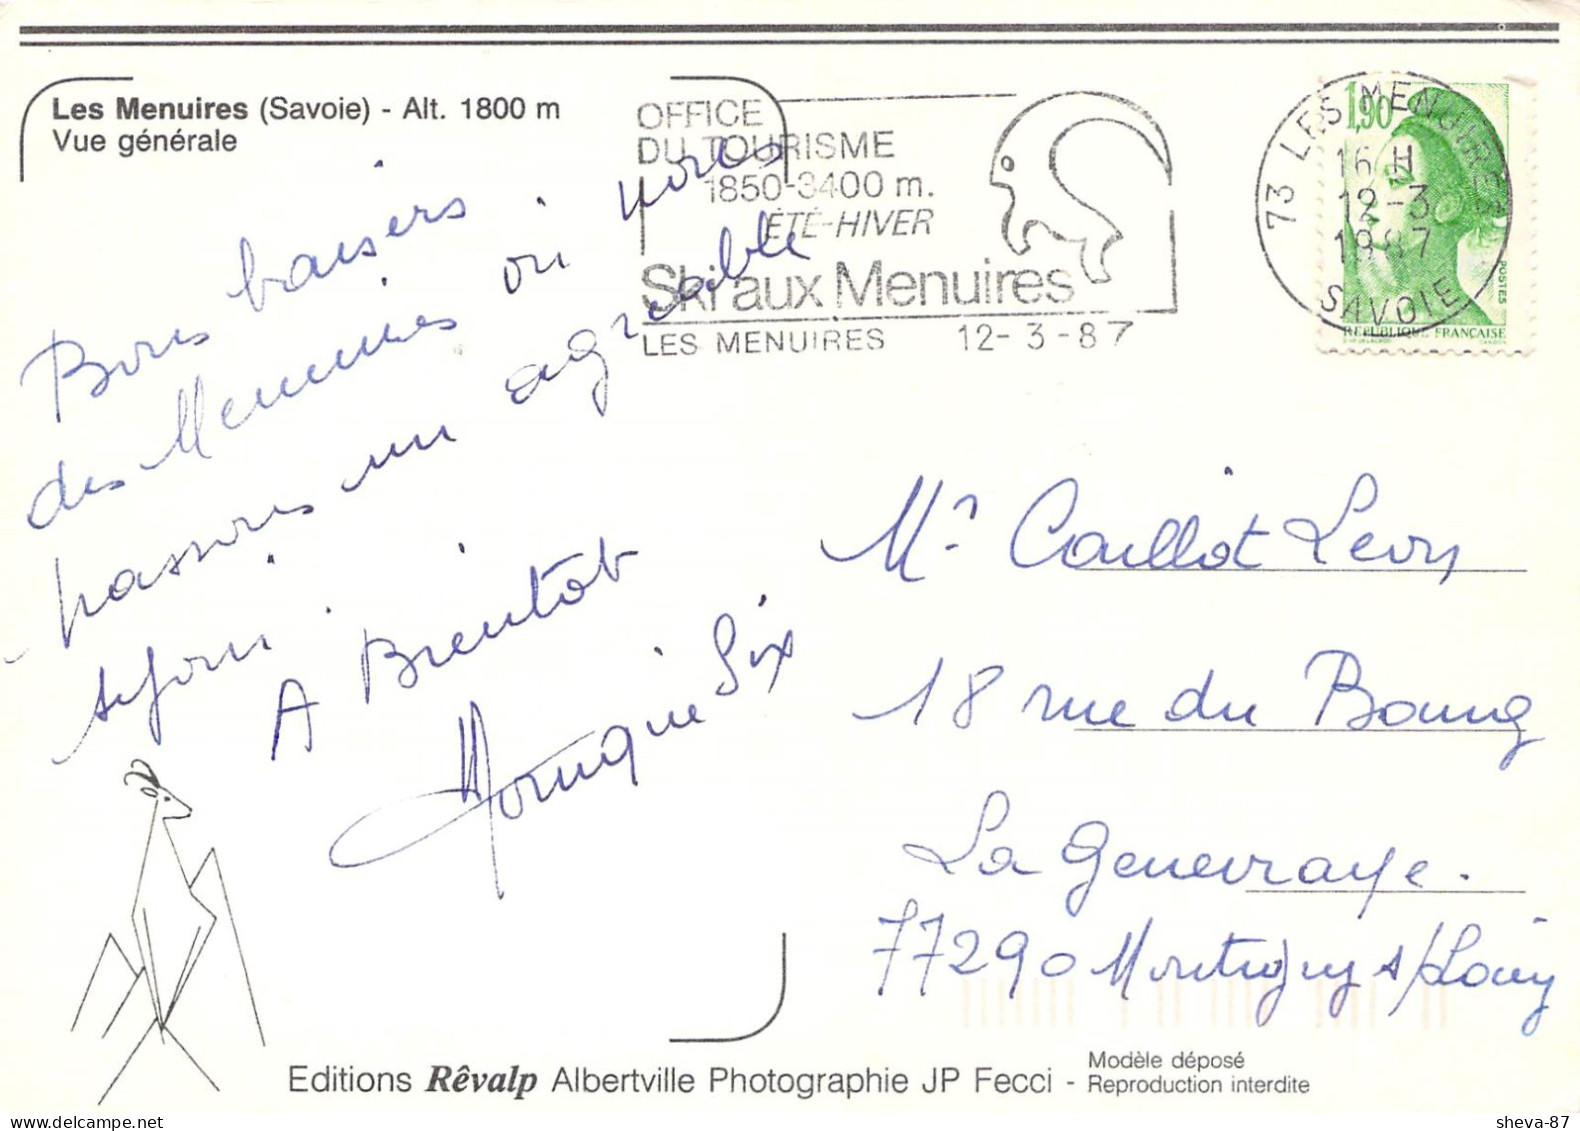 Les Menuires (Savoie) - Alt. 1800 m
Vue générale
OFFICE
DU TOURISME
1850-3400 m.
ÉTÉ-HIVER
Ski aux Menuires
LES MENUIRES 12-3-87
73 LES MENUIRES
16 H
12-3
1987
SAVOIE
1,90
POSTES
REPUBLIQUE FRANÇAISE
Bons baisers
des Menuires où nous
passons un agréable
séjour.
A Bientôt
Monique Six
Mr Caillot Leon
18 rue du Bourg
La Genevraye.
77290 Montigny s/Loing
Editions Rêvalp Albertville Photographie JP Fecci - Modèle déposé
Reproduction interdite
sheva-87